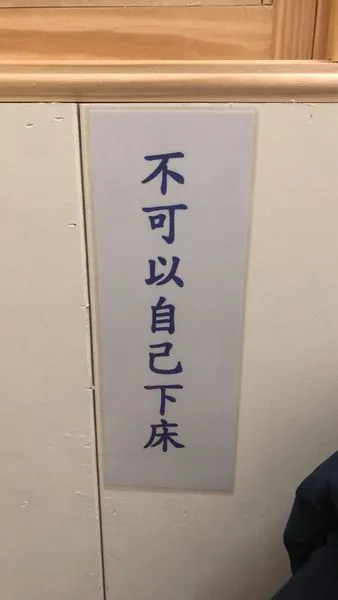 不可以自己下床